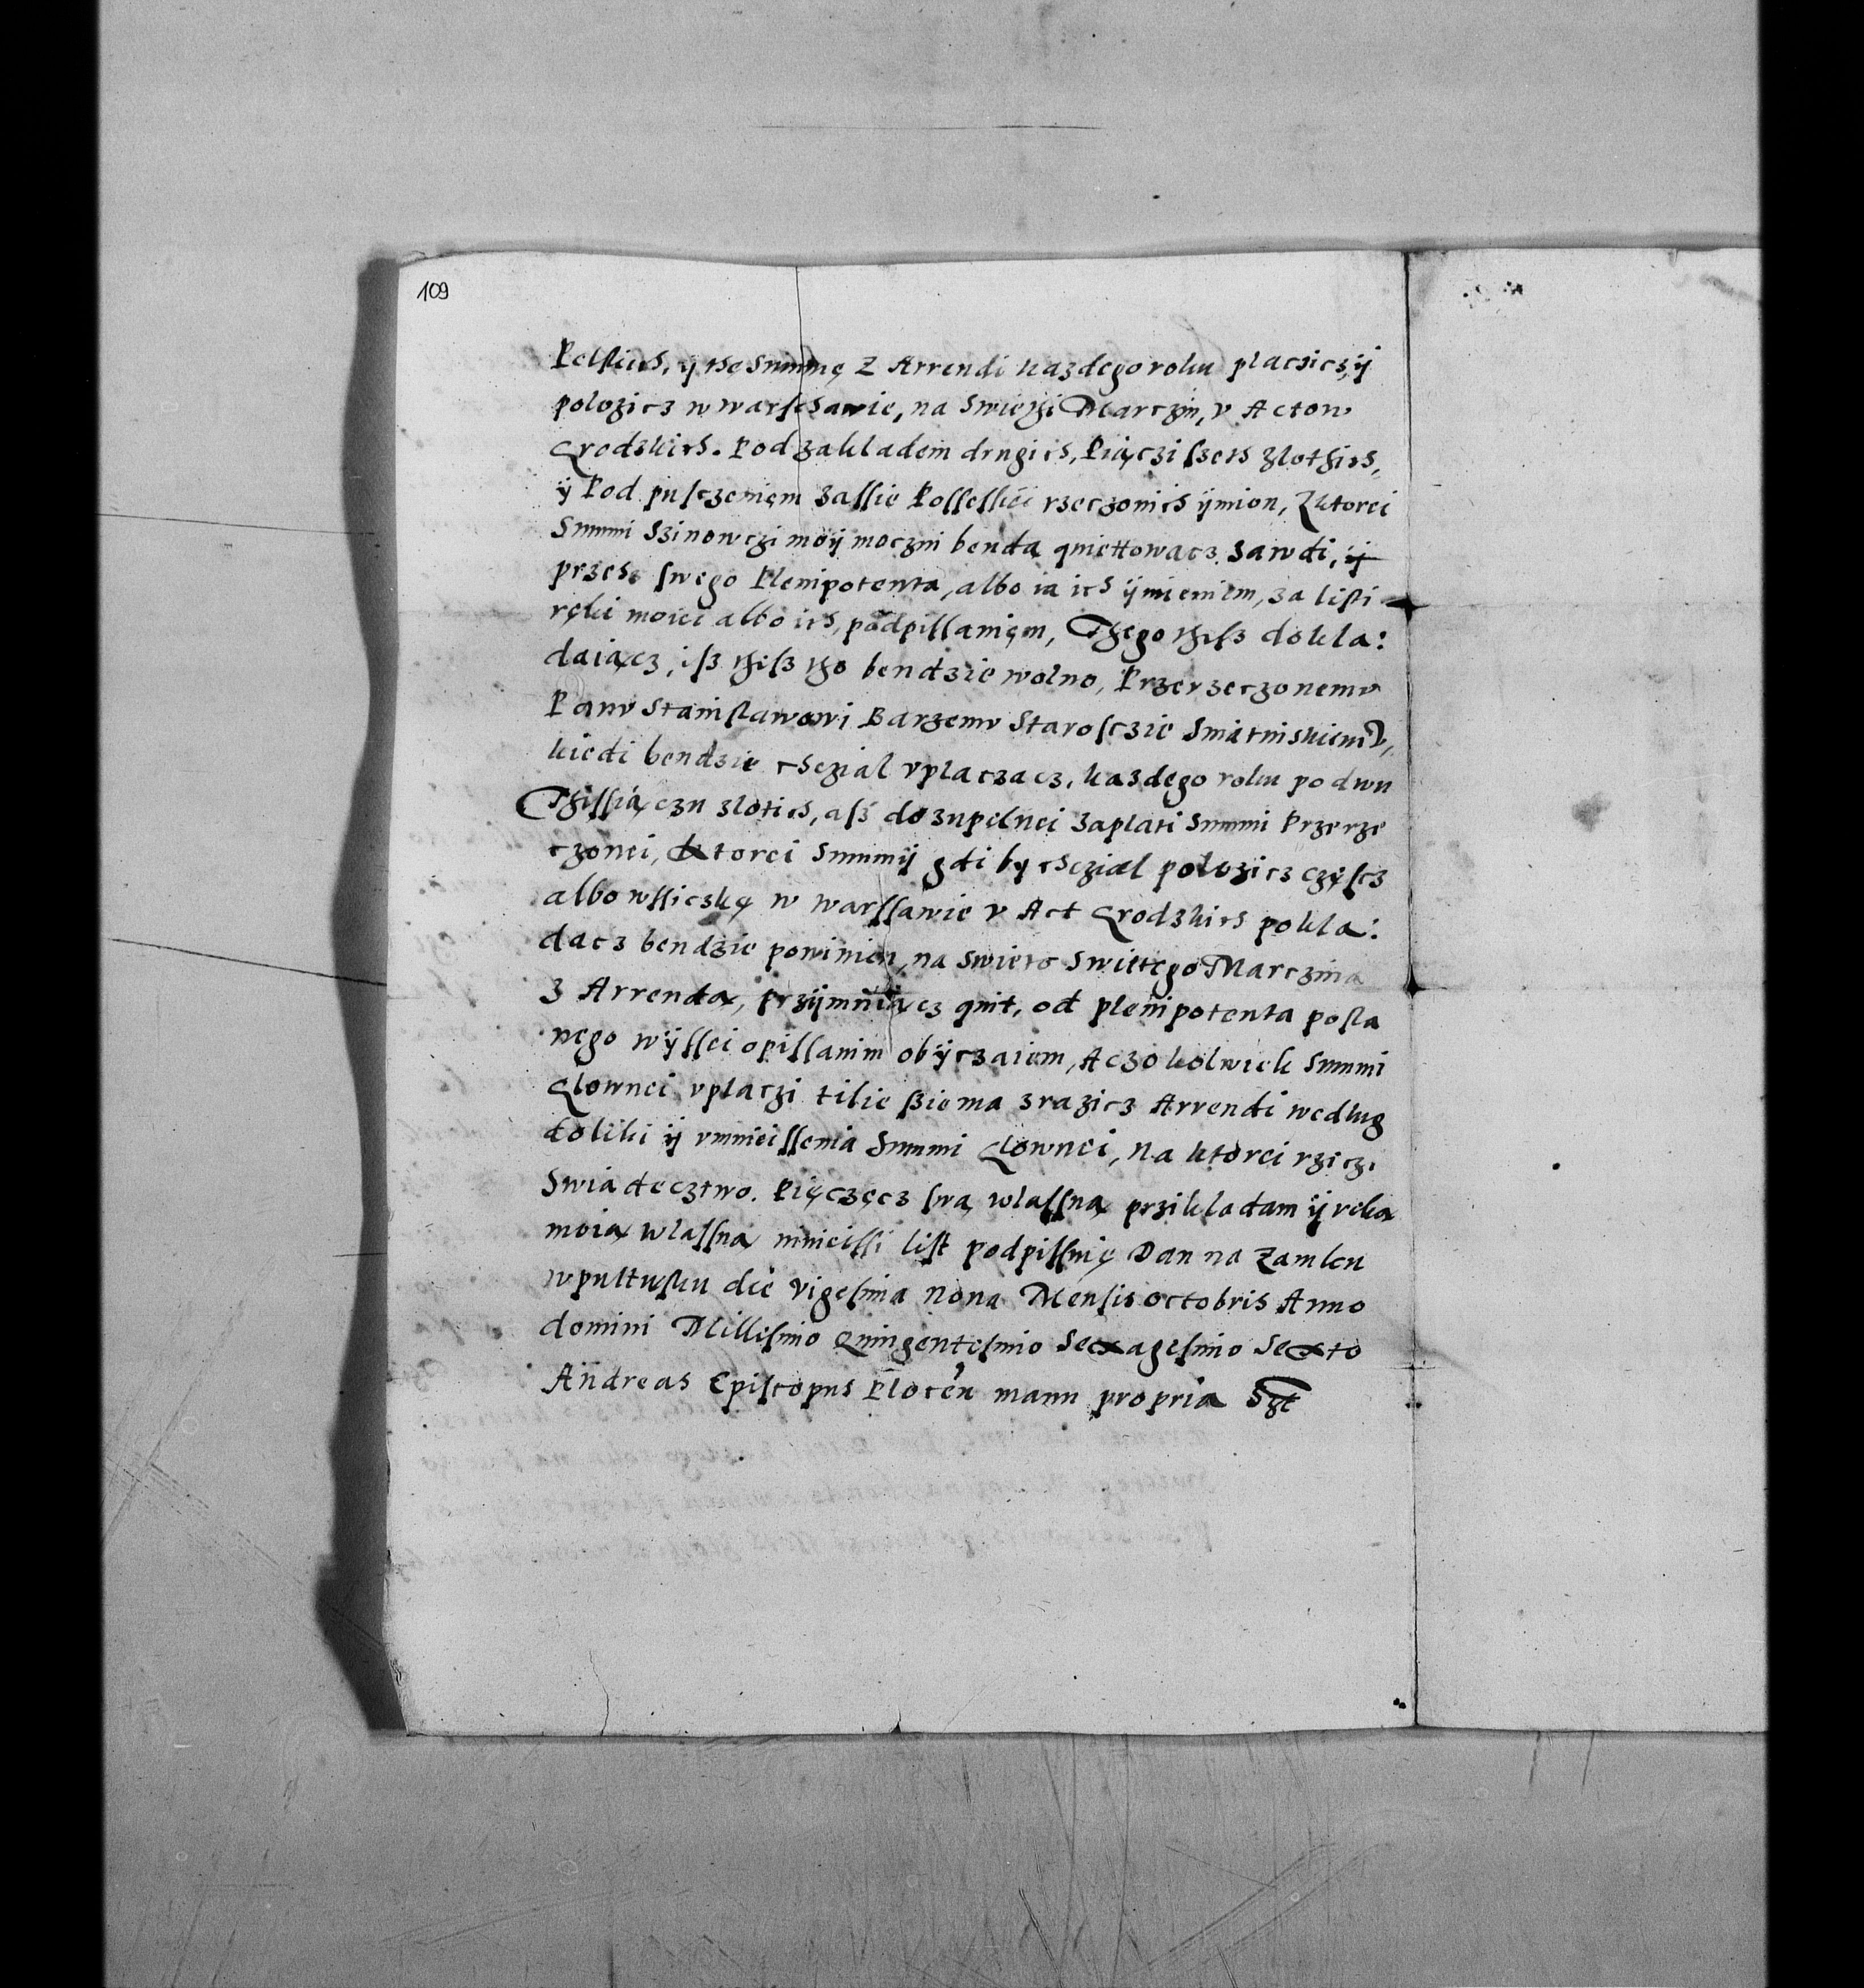 109
Polskich, ÿ thę Summę z Arrendi kazdego roku placzicz, ÿ
polozicz w warschawie, na Swiethi Marczin, v Acton
Grodzkich. Pod zakladem drugich, Piączi szeth zlothich,
ÿ Pod puszczeniem zassie Possessiei rzeczonich ÿmion, Zktorei
Summi Szinowczi moÿ moczni benda quiettowacz. zawdi, ÿ
przesz swego Plenipotenta, albo ia ich ÿmieniem, za listi
ręki moiei albo ich, podpissaniem, Thego thesz dokla:
daiącz, isz thisz tho bendzie wolno, Przerzeczonemv
Panv Stanislawowi Barzemv Starosczie Smiatinskiemv,
kiedi bendzie chczial vplaczacz, kazdego roku po dwu
Thissiączu zlotich, asz do zupelnei zaplati Summi Przerze
czonei, ktorei Summÿ gdi by chczial polozicz częscz
albo wssiczkę w warssawie v Act Grodzkich pokla:
dacz bendzie powinien, na swieto Swiettego Marczina
z Arrendą, przÿmuiącz quit, od plenipotenta posla
nego wÿssei opissanim obÿczaiem, Aczokolwiek Summi
Glownei vplaczi tilie sie ma zrazicz Arrendi wedlug
toliki ÿ vmnieissenia Summi Glownei, Na ktorei rziczi
Swiadecztwo. Pięczęcz swą wlassną przikladam ÿ ręką
moią wlassną ninieissi list podpissuię Dan na Zamku
w pultusku die vigesima Nona Mensis octobris Anno
domini Millesimo Quingentesimo Sexagesimo Sexto
Andreas Episcopus Plocen manu propria Sszt